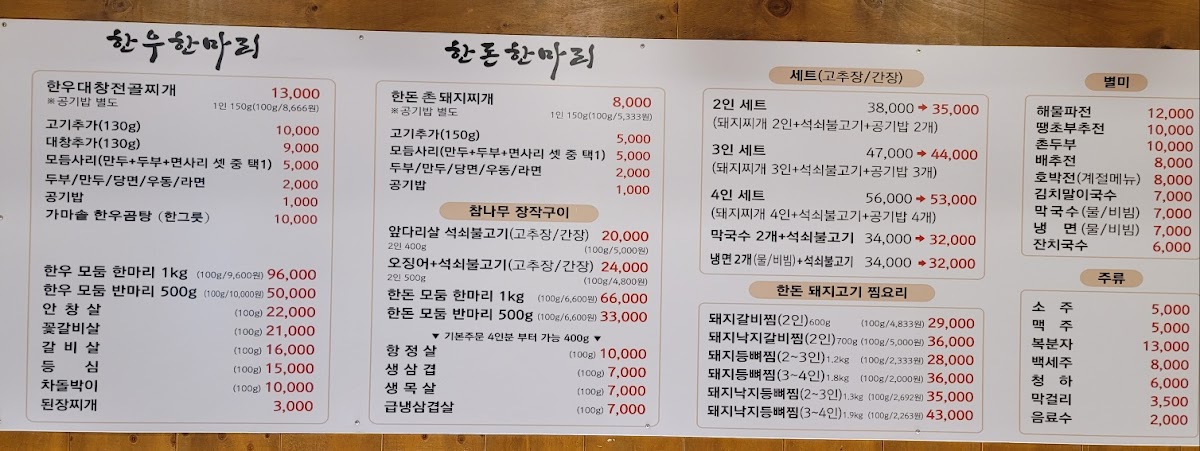 한우한마리
한우대창전골찌개 13,000
※공기밥 별도 1인 150g(100g/8,666원)
고기추가(130g) 10,000
대창추가(130g) 9,000
모듬사리(만두+두부+면사리 셋 중 택1) 5,000
두부/만두/당면/우동/라면 2,000
공기밥 1,000
가마솥 한우곰탕 (한그릇) 10,000
한우 모둠 한마리 1kg (100g/9,600원) 96,000
한우 모둠 반마리 500g (100g/10,000원) 50,000
안 창 살 (100g) 22,000
꽃갈비살 (100g) 21,000
갈 비 살 (100g) 16,000
등 심 (100g) 15,000
차돌박이 (100g) 10,000
된장찌개 3,000
한돈한마리
한돈 촌 돼지찌개 8,000
※공기밥 별도 1인 150g(100g/5,333원)
고기추가(150g) 5,000
모듬사리(만두+두부+면사리 셋 중 택1) 5,000
두부/만두/당면/우동/라면 2,000
공기밥 1,000
참나무 장작구이
앞다리살 석쇠불고기(고추장/간장) 20,000
2인 400g (100g/5,000원)
오징어+석쇠불고기(고추장/간장) 24,000
2인 500g (100g/4,800원)
한돈 모둠 한마리 1kg (100g/6,600원) 66,000
한돈 모둠 반마리 500g (100g/6,600원) 33,000
▼ 기본주문 4인분 부터 가능 400g ▼
항 정 살 (100g) 10,000
생 삼 겹 (100g) 7,000
생 목 살 (100g) 7,000
급냉삼겹살 (100g) 7,000
세트(고추장/간장)
2인 세트 38,000 ➔ 35,000
(돼지찌개 2인+석쇠불고기+공기밥 2개)
3인 세트 47,000 ➔ 44,000
(돼지찌개 3인+석쇠불고기+공기밥 3개)
4인 세트 56,000 ➔ 53,000
(돼지찌개 4인+석쇠불고기+공기밥 4개)
막국수 2개+석쇠불고기 34,000 ➔ 32,000
냉면 2개(물/비빔)+석쇠불고기 34,000 ➔ 32,000
한돈 돼지고기 찜요리
돼지갈비찜(2인)600g (100g/4,833원) 29,000
돼지낙지갈비찜(2인)700g (100g/5,000원) 36,000
돼지등뼈찜(2~3인)1.2kg (100g/2,333원) 28,000
돼지등뼈찜(3~4인)1.8kg (100g/2,000원) 36,000
돼지낙지등뼈찜(2~3인)1.3kg (100g/2,692원) 35,000
돼지낙지등뼈찜(3~4인)1.9kg (100g/2,263원) 43,000
별미
해물파전 12,000
땡초부추전 10,000
촌두부 10,000
배추전 8,000
호박전(계절메뉴) 8,000
김치말이국수 7,000
막국수(물/비빔) 7,000
냉 면(물/비빔) 7,000
잔치국수 6,000
주류
소 주 5,000
맥 주 5,000
복분자 13,000
백세주 8,000
청 하 6,000
막걸리 3,500
음료수 2,000